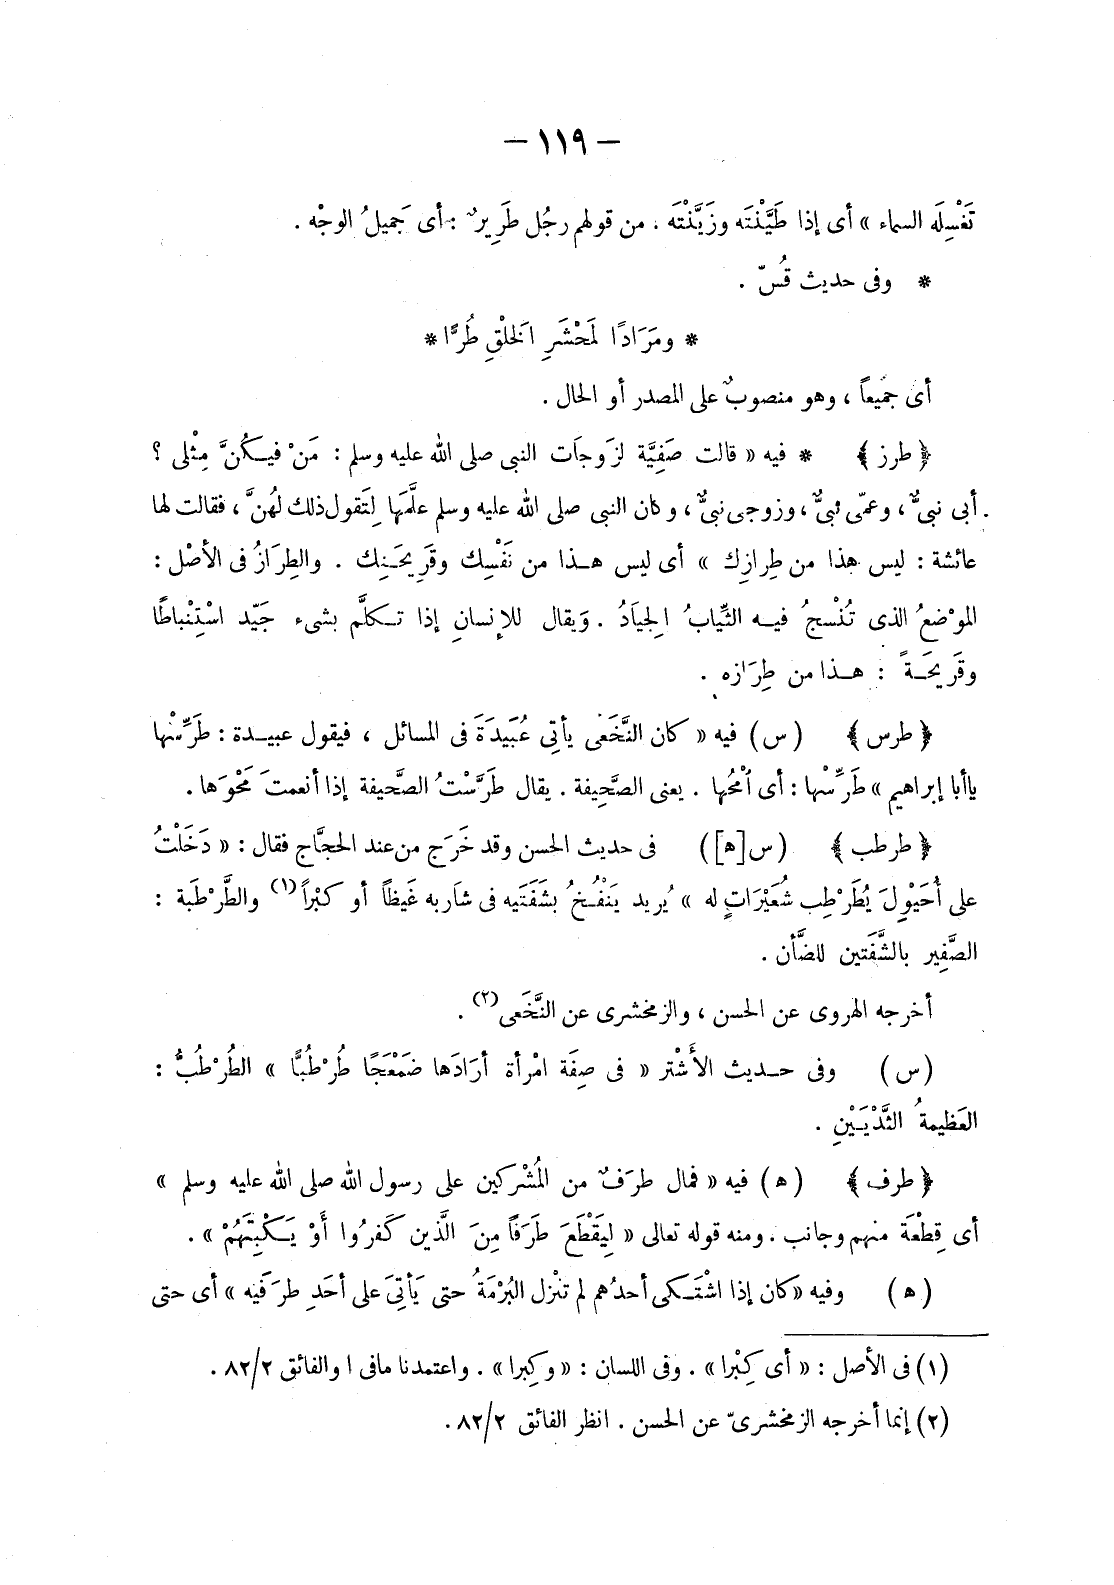 — ١١٩ —
تَغْسِلَه السماء » أى إذا طَيَّنْتَه وزَيَّنْتَه ، من قولهم رجُل طَرِيرٌ : أى جَمِيلُ الوجْه .
* وفى حديث قُسّ .
* ومَرَادًا لمَحْشَرِ الَخلْقِ طُرًّا *
أى جَمِيعاً ، وهو منصوبٌ على المصدر أو الحال .
﴿ طرز ﴾ * فيه « قالت صَفِيَّة لزَوجاَت النبى صلى الله عليه وسلم : مَنْ فيكُنَّ مِثْلى ؟
أبى نبىٌّ ، وعمّى نبىٌّ ، وزوجى نبىٌّ ، وكان النبى صلى الله عليه وسلم علَّمَها لِتَقول ذلك لهُنَّ ، فقالت لها
عائشة : ليس هذا من طِرازِك » أى ليس هذا من نَفْسِك وقَرِيحَتِك . والطِرَازُ فى الأصْل :
الموْضعُ الذى تُنْسجُ فيه الثِّيابُ الِجيَادُ . وَيقال للإنسانِ إذا تكلَّم بشىء جَيّد اسْتِنْباطًا
وقَرِيحَةً : هذا من طِرَازه .
﴿ طرس ﴾ ( س ) فيه « كان النَّخَعى يأتى عُبَيدَةَ فى المسائل ، فيقول عبيدة : طَرِّسْها
ياأبا إبراهيم » طَرِّسْها : أى اْمْحُها . يعنى الصَّحِيفة . يقال طَرَّسْتُ الصَّحيفة إذا أنعمتَ مَحْوَها .
﴿ طرطب ﴾ ( س [ ه ] ) فى حديث الحسن وقد خَرَج من عند الحجَّاج فقال : « دَخَلْتُ
على أُحَيْوِلَ يُطَرْطِب شُعَيْرَاتٍ له » يُريد يَنْفُخُ بشَفَتَيه فى شاَربه غَيظاً أو كَبْراً (١) والطَّرْطَبة :
الصَّفِير بالشَّفَتين للضَّأن .
أخرجه الهروى عن الحسن ، والزمخشرى عن النَّخَعى (٢) .
( س ) وفى حديث الأَشْتر « فى صِفَة امْرأة أرَادَها ضَمْعَجًا طُرْطُبًّا » الطُرْطُبُّ :
العَظيمةُ الثَّدْيَيْنِ .
﴿ طرف ﴾ ( ه ) فيه « فمال طرَفٌ من المُشْركين على رسول الله صلى الله عليه وسلم »
أى قِطْعَة منهم وجانب . ومنه قوله تعالى « لِيَقْطَعَ طَرَفاً مِنَ الَّذين كَفرُوا أَوْ يَكْبِتَهُمْ » .
( ه ) وفيه « كان إذا اشْتَكى أحدُهم لم تنْزل البُرْمَةُ حتى يَأتىَ على أحَدِ طرَفَيه » أى حتى
(١) فى الأصل : « أى كِبْرا » . وفى اللسان : « وكِبرا » . واعتمدنا مافى ا والفائق ٨٢/٢ .
(٢) إنما أخرجه الزمخشرىّ عن الحسن . انظر الفائق ٨٢/٢ .